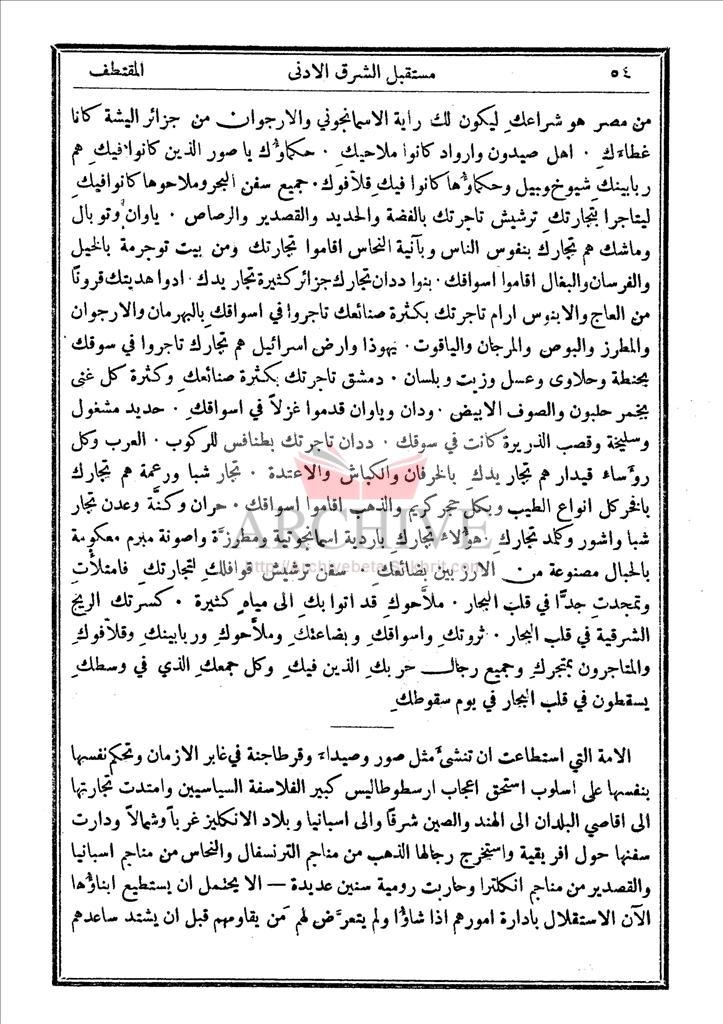 ٥٤ مستقبل الشرق الادنى المقتطف
من مصر هو شراعكِ ليكون لك راية الاسمانجوني والارجوان من جزائر اليشة كانا
غطاءَكِ . اهل صيدون وارواد كانوا ملاحيكِ . حكماؤُك يا صور الذين كانوا فيكِ هم
ربابينكِ شيوخ وبيل وحكماؤُها كانوا فيكِ قلاَّفوك . جميع سفن البحر وملاحوها كانوا فيكِ
ليتاجروا بتجارتكِ ترشيش تاجرتك بالفضة والحديد والقصدير والرصاص . ياوان وتوبال
وماشك هم تجارك بنفوس الناس وبآنية النحاس اقاموا تجارتك ومن بيت توجرمة بالخيل
والفرسان والبغال اقاموا اسواقك . بنوا ددان تجارك جزائر كثيرة تجار يدك . ادوا هديتك قرونًا
من العاج والابنوس ارام تاجرتك بكثرة صنائعك تاجروا في اسواقكِ بالبهرمان والارجوان
والمطرز والبوص والمرجان والياقوت . يهوذا وارض اسرائيل هم تجارك تاجروا في سوقك
بحنطة وحلاوى وعسل وزيت وبلسان . دمشق تاجرتك بكثرة صنائعكِ وكثرة كل غنى
بخمر حلبون والصوف الابيض . ودان وياوان قدموا غزلاً في اسواقكِ . حديد مشغول
وسليخة وقصب الذريرة كانت في سوقك . ددان تاجرتك بطنافس للركوب . العرب وكل
روَّساء قيدار هم تجار يدك بالخرفان والكباش والاعتدة . تجار شبا ورعمة هم تجارك
بافخر كل انواع الطيب وبكل حجر كريم والذهب اقاموا اسواقك . حران وكنَّة وعدن تجار
شبا واشور وكلمد تجاركِ . هؤُلاءِ تجاركِ باردية اسمانجونية ومطرزة واصونة مبرم معكومة
بالحبال مصنوعة من الارز بين بضائعكِ سفن ترشيش قوافلكِ لتجارتكِ فامتلأتِ
وتمجدتِ جدًّا في قلب البحار . ملاَّحوكِ قد اتوا بكِ الى مياه كثيرة . كسرتك الريح
الشرقية في قلب البحار . ثروتكِ واسواقكِ وبضاعتكِ وملاَّحوكِ وربابينكِ وقلاَّفوكِ
والمتاجرون بمتجركِ وجميع رجال حربكِ الذين فيكِ وكل جمعكِ الذي في وسطكِ
يسقطون في قلب البحار في يوم سقوطكِ
الامة التي استطاعت ان تنشئَ مثل صور وصيداء وقرطاجنة في غابر الازمان وتحكم نفسها
بنفسها على اسلوب استحق اعجاب ارسطوطاليس كبير الفلاسفة السياسيين وامتدت تجارتها
الى اقاصي البلدان الى الهند والصين شرقًا والى اسبانيا وبلاد الانكليز غربًا وشمالاً ودارت
سفنها حول افريقية واستخرج رجالها الذهب من مناجم الترنسفال والنحاس من مناجم اسبانيا
والقصدير من مناجم انكلترا وحاربت رومية سنين عديدة — الا يحتمل ان يستطيع ابناؤُها
الآن الاستقلال بادارة امورهم اذا شاؤُا ولم يتعرَّض لهم مَن يقاومهم قبل ان يشتد ساعدهم
ARCHIVE
http://Archivebeta.Sakhrit.com